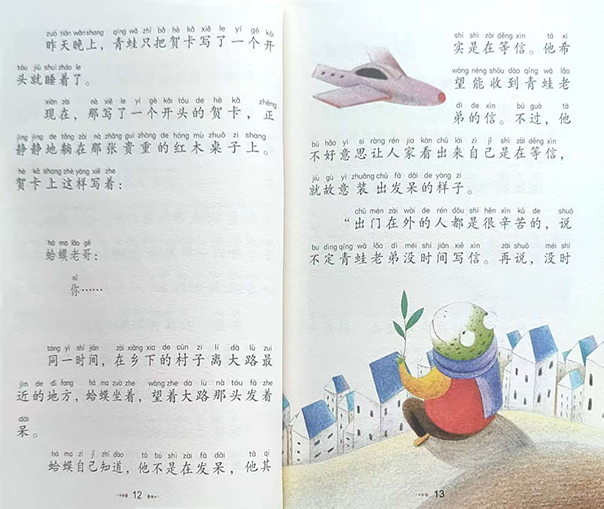 zuó tiān wǎn shang qīng wā zhǐ bǎ hè kǎ xiě le yí gè kāi
昨天晚上，青蛙只把贺卡写了一个开
tóu jiù shuì zháo le
头就睡着了。
xiàn zài nà xiě le yí gè kāi tóu de hè kǎ zhèng
现在，那写了一个开头的贺卡，正
jìng jìng de tǎng zài nà zhāng guì zhòng de hóng mù zhuō zi shang
静静地躺在那张贵重的红木桌子上。
hè kǎ shang zhè yàng xiě zhe
贺卡上这样写着：
há ma lǎo gē
蛤蟆老哥：
nǐ
你……
tóng yì shí jiān zài xiāng xia de cūn zi lí dà lù zuì
同一时间，在乡下的村子离大路最
jìn de dì fang há ma zuò zhe wàng zhe dà lù nà tóu fā zhe
近的地方，蛤蟆坐着，望着大路那头发着
dāi
呆。
há ma zì jǐ zhī dào tā bú shì zài fā dāi tā qí
蛤蟆自己知道，他不是在发呆，他其
12
shí shì zài děng xìn tā xī
实是在等信。他希
wàng néng shōu dào qīng wā lǎo
望能收到青蛙老
dì de xìn bú guò tā
弟的信。不过，他
bù hǎo yì si ràng rén jia kàn chū lái zì jǐ shì zài děng xìn
不好意思让人家看出来自己是在等信，
jiù gù yì zhuāng chū fā dāi de yàng zi
就故意装出发呆的样子。
chū mén zài wài de rén dōu shì hěn xīn kǔ de shuō
“出门在外的人都是很辛苦的，说
bu dìng qīng wā lǎo dì méi shí jiān xiě xìn zài shuō méi shí
不定青蛙老弟没时间写信。再说，没时
13